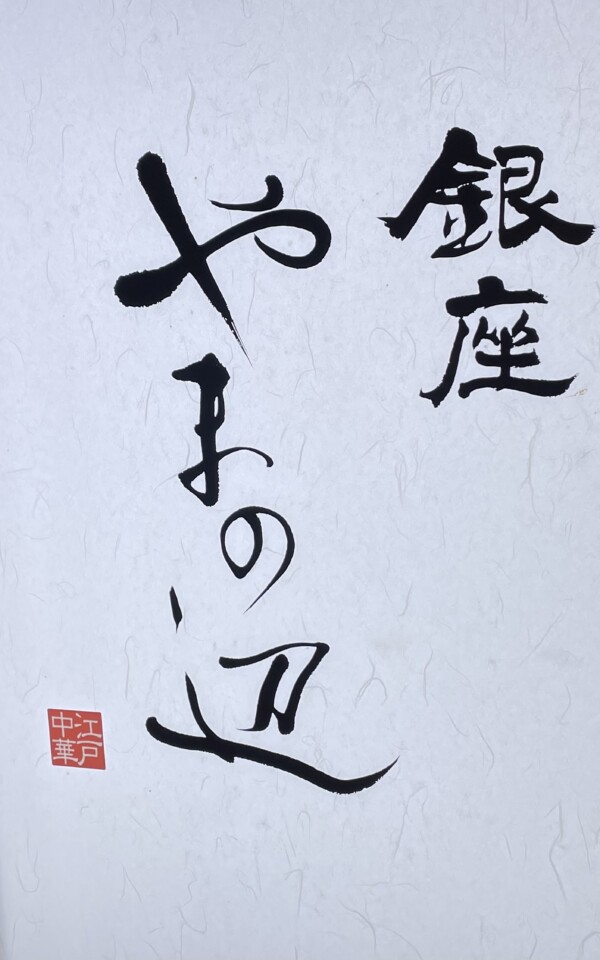 銀座
やまの辺
江戸
中華